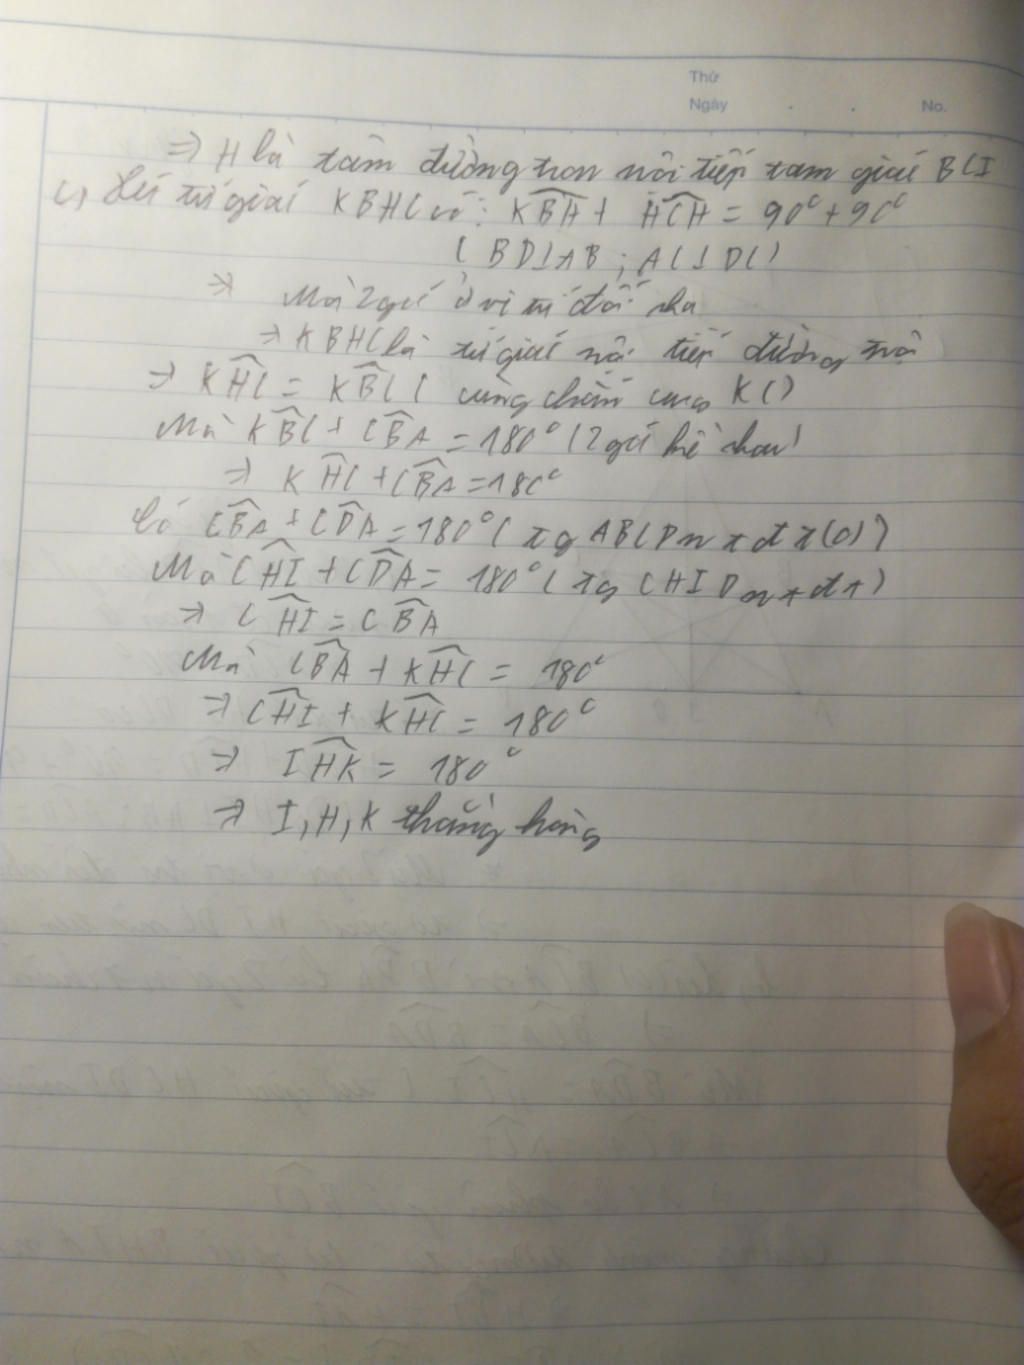 Thứ
Ngày . . No.
=> H là tâm đường tròn nội tiếp tam giác BCI
c) Xét tứ giác KBHC có: KBH + HCH = 90° + 90°
( BD⊥AB ; AC⊥DC)
=> Mà 2 góc ở vị trí đối nha
=> KBHC là tứ giác nội tiếp đường trò
=> KHC = KBC ( cùng chắn cung KC)
Mà KBC + CBA = 180° (2 góc kề nhau)
=> KHC + CBA = 180°
Có CBA + CDA = 180° ( tg ABCD n t đ t (O))
Mà CHI + CDA = 180° ( tg CHID n t đ t)
=> CHI = CBA
Mà CBA + KHC = 180°
=> CHI + KHC = 180°
=> IHK = 180°
=> I, H, K thẳng hàng